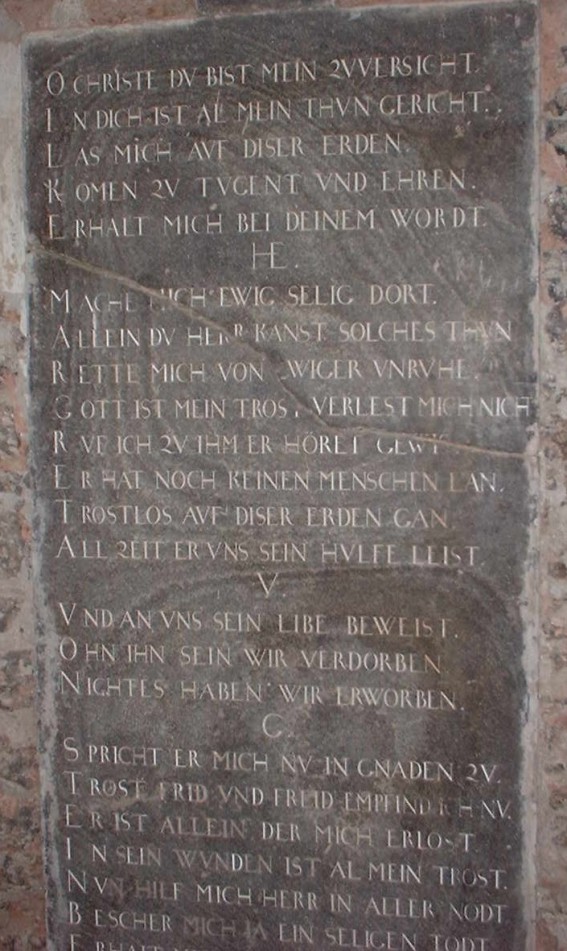 O CHRISTE DV BIST MEIN ZVVERSICHT.
IN DICH IST AL MEIN THVN GERICHT.
LAS MICH AVF DISER ERDEN.
KOMEN ZV TVGENT VND EHREN.
ERHALT MICH BEI DEINEM WORDT.
HE.
MACHE MICH EWIG SELIG DORT.
ALLEIN DV HERR KANST SOLCHES THVN
RETTE MICH VON EWIGER VNRVHE.
GOTT IST MEIN TROST VERLEST MICH NICH
RVFE ICH ZV IHM ER HÖRET GEWIS
ER HAT NOCH KEINEN MENSCHEN LAN.
TROSTLOS AVF DISER ERDEN GAN
ALLZEIT ER VNS SEIN HVLFE LEIST.
V.
VND AN VNS SEIN LIBE BEWEIST.
OHN IHN SEIN WIR VERDORBEN
NIGHTES HABEN WIR ERWORBEN.
G.
SPRICHT ER MICH NV IN GNADEN ZV.
TROST FRID VND FREID EMPFIND ICH NV.
ER IST ALLEIN DER MICH ERLOST.
IN SEIN WVNDEN IST AL MEIN TROST.
NVN HILF MICH HERR IN ALLER NODT.
BESCHER MICH JA EIN SELIGEN TODT.
ERHALT